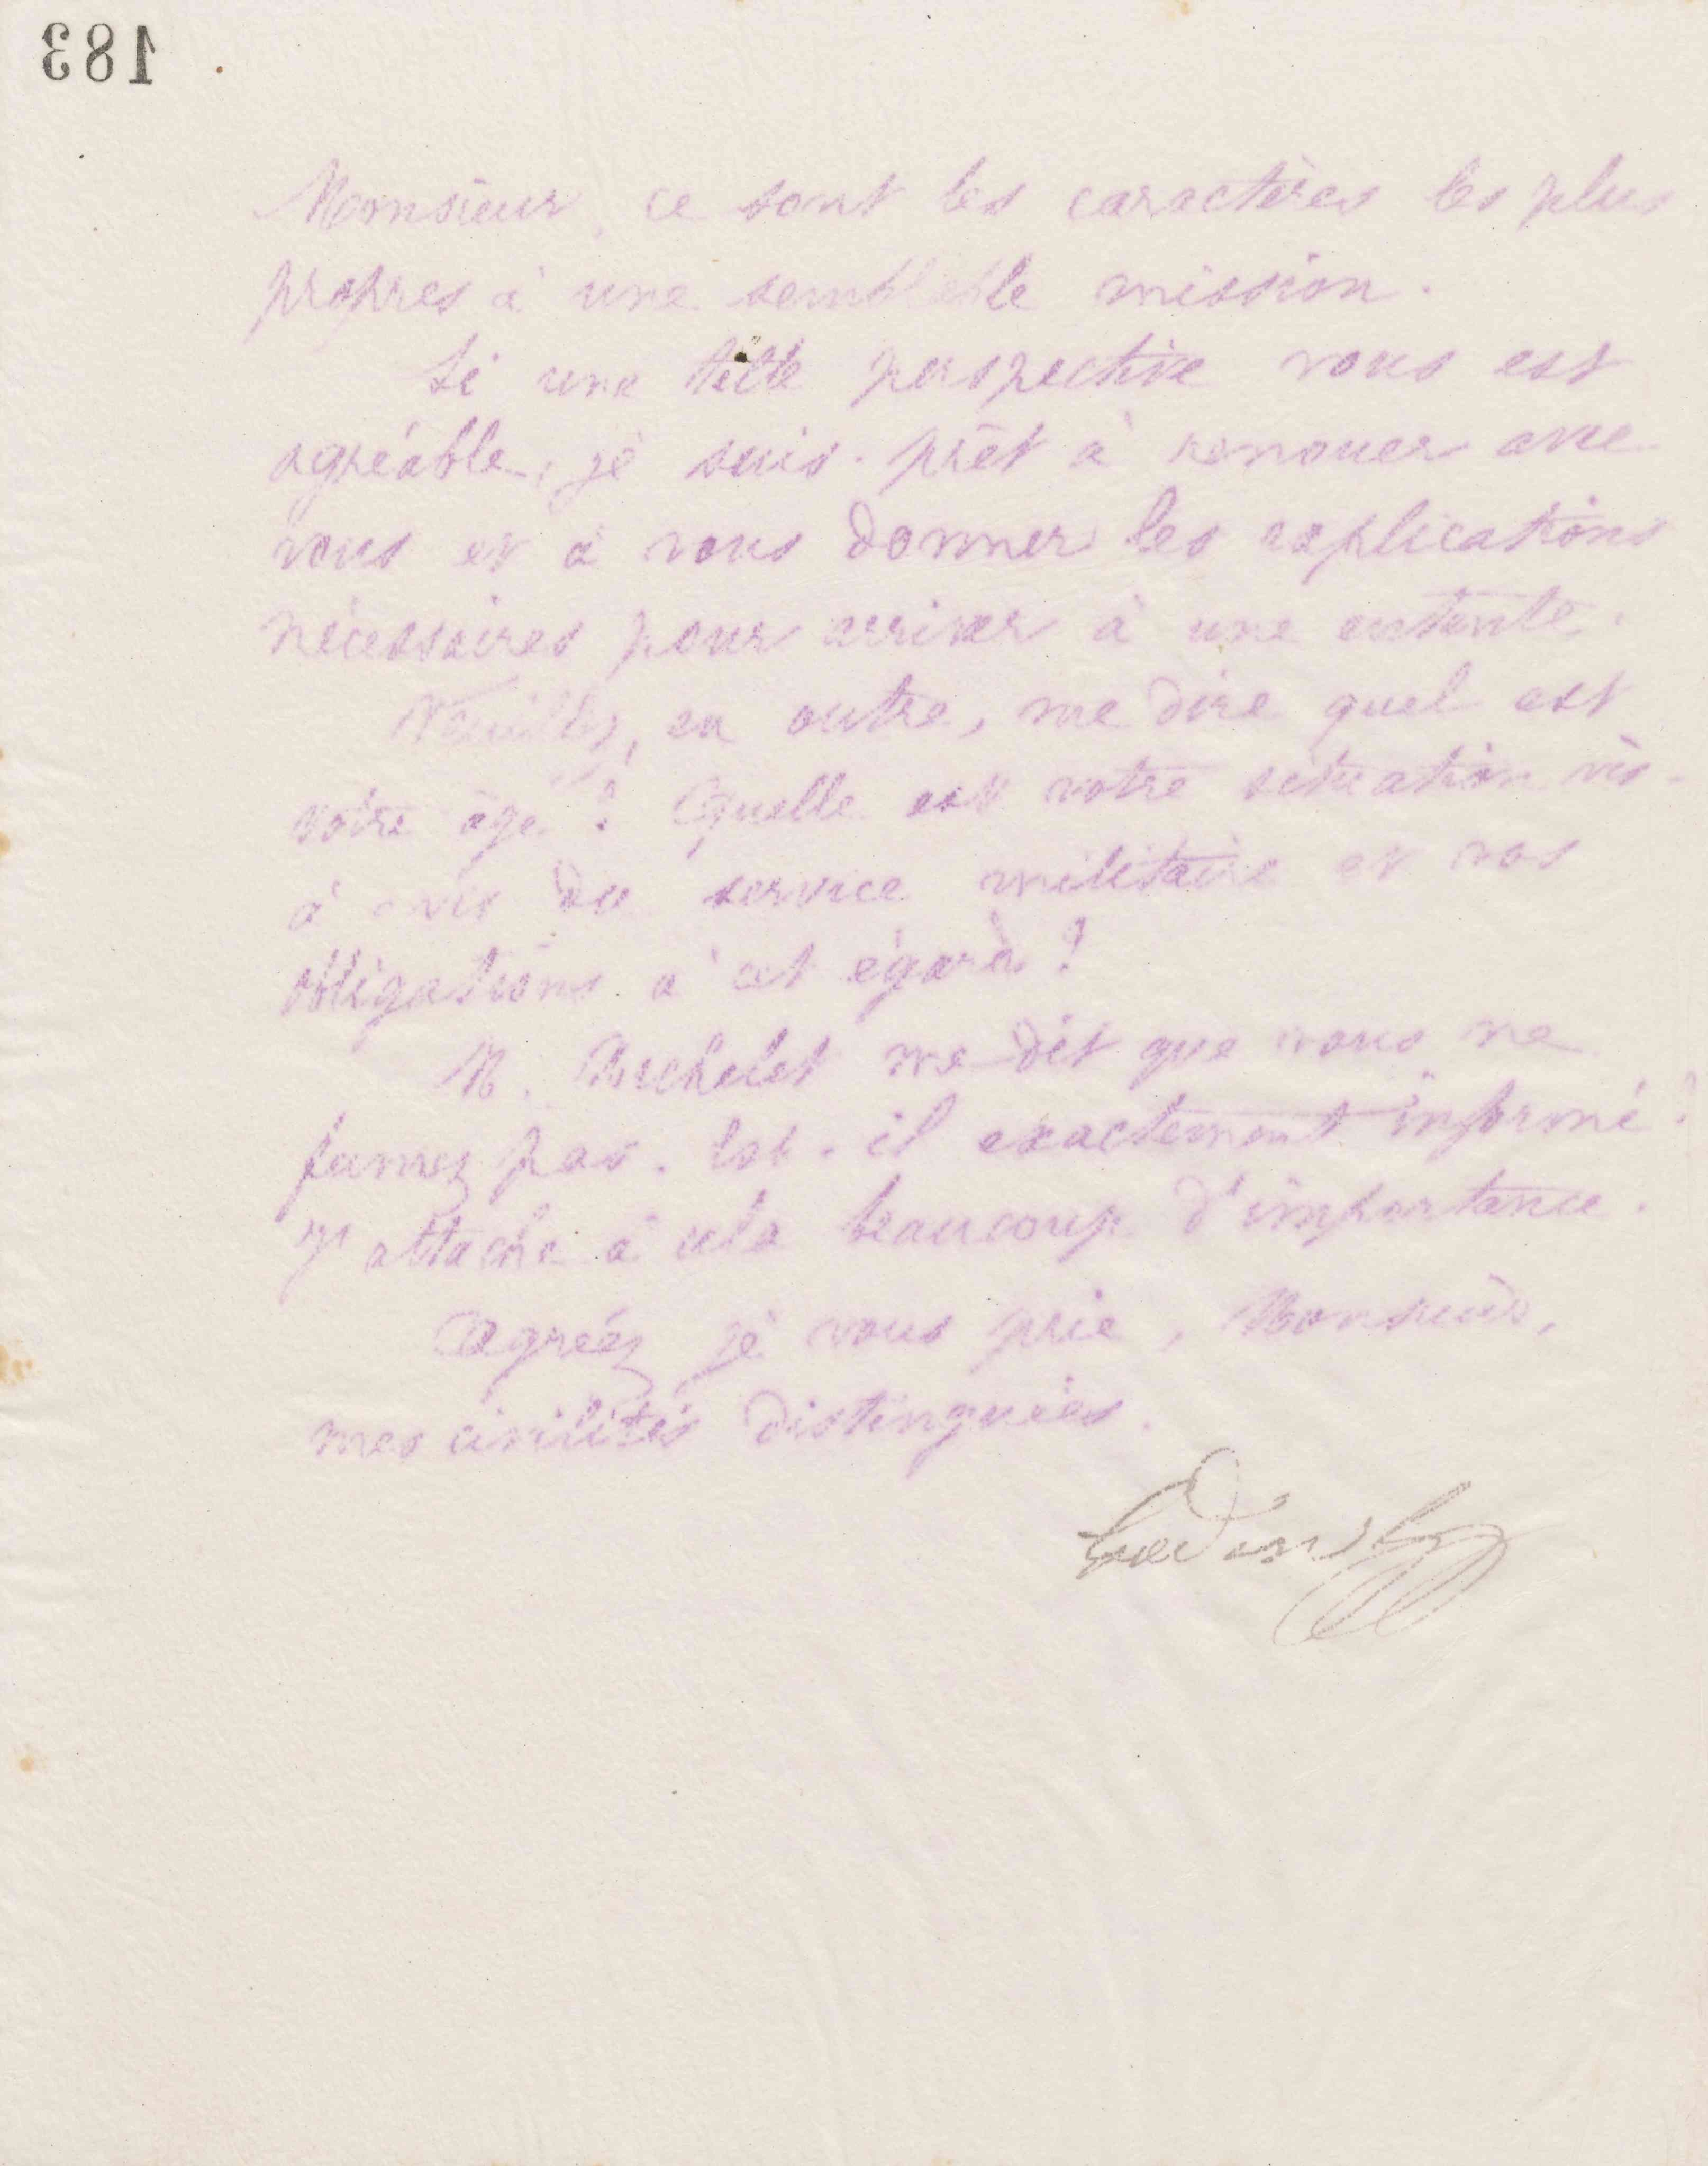 183
Monsieur, ce sont les caractères les plus
propres à une semblable mission.
Si une telle perspective vous est
agréable, je suis prêt à renouer avec
vous et à vous donner les explications
nécessaires pour arriver à une entente.
Veuillez, en outre, me dire quel est
votre âge ? Quelle est votre situation vis-
à-vis du service militaire et vos
obligations à cet égard ?
M. me dit que vous ne
fumez pas. Est-il exactement informé ?
J'attache à cela beaucoup d'importance.
Agréez je vous prie, Monsieur,
mes civilités distinguées.
Godin